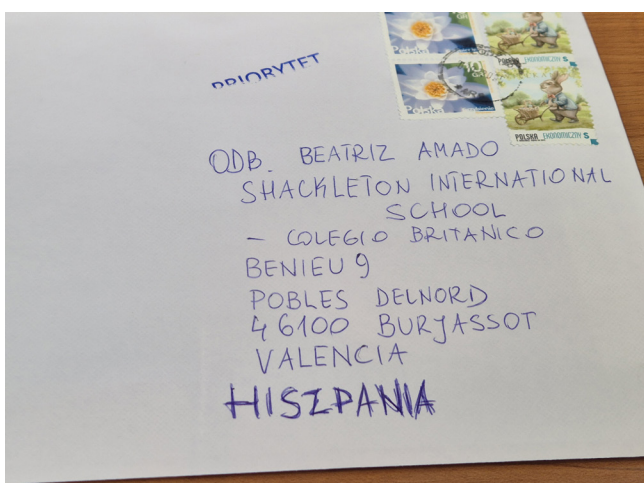 PRIORYTET
Polska
Polska
POLSKA EKONOMICZNY S
ODB. BEATRIZ AMADO
SHACKLETON INTERNATIONAL
SCHOOL
- COLEGIO BRITANICO
BENIEU 9
POBLES DELNORD
46100 BURJASSOT
VALENCIA
HISZPANIA